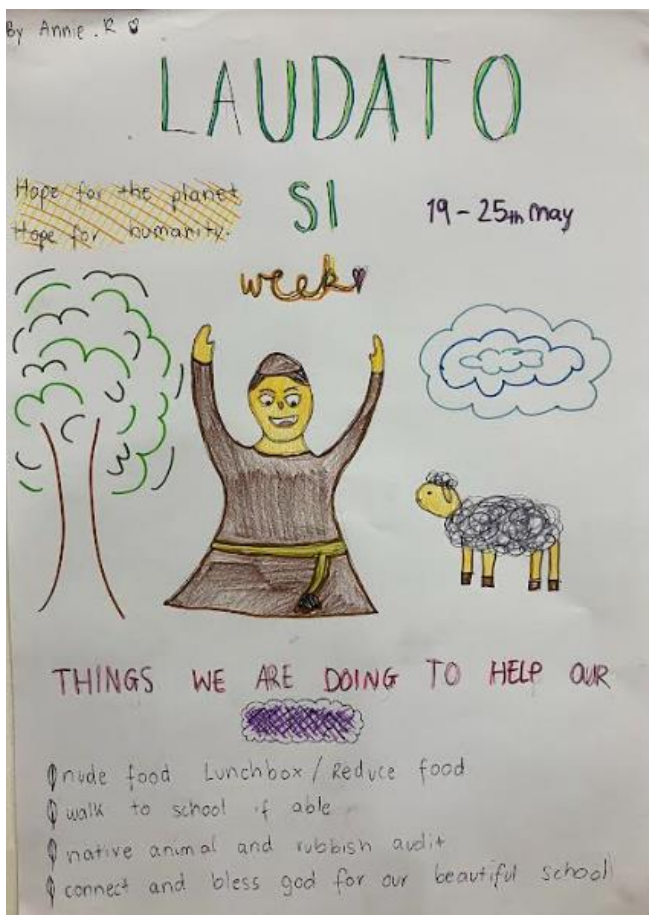 By Annie.R
LAUDATO
SI
week
Hope for the planet
Hope for humanity.
19 - 25th may
THINGS WE ARE DOING TO HELP OUR
nude food Lunchbox / Reduce food
walk to school if able
native animal and rubbish audit
connect and bless god for our beautiful school